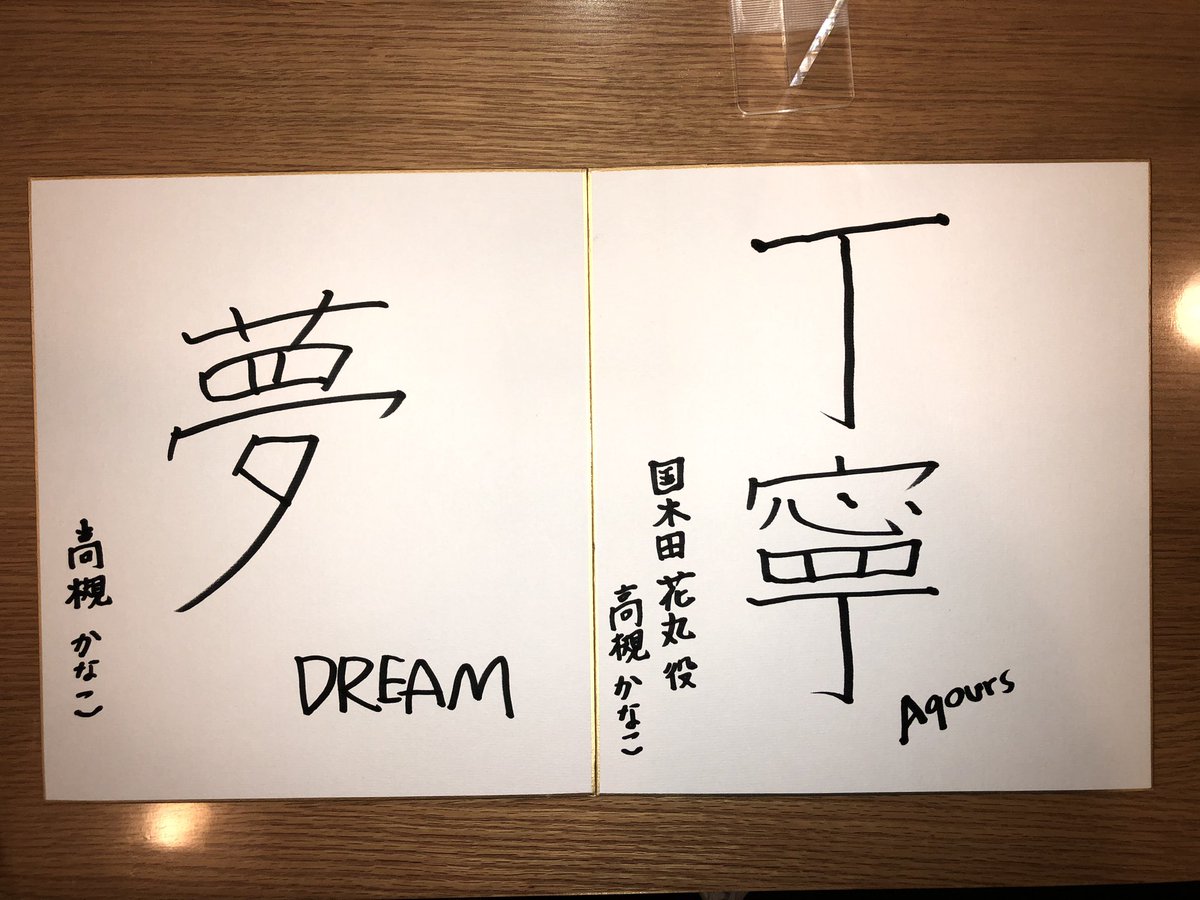 夢
高槻かなこ
DREAM
丁寧
国木田花丸役
高槻かなこ
Aqours